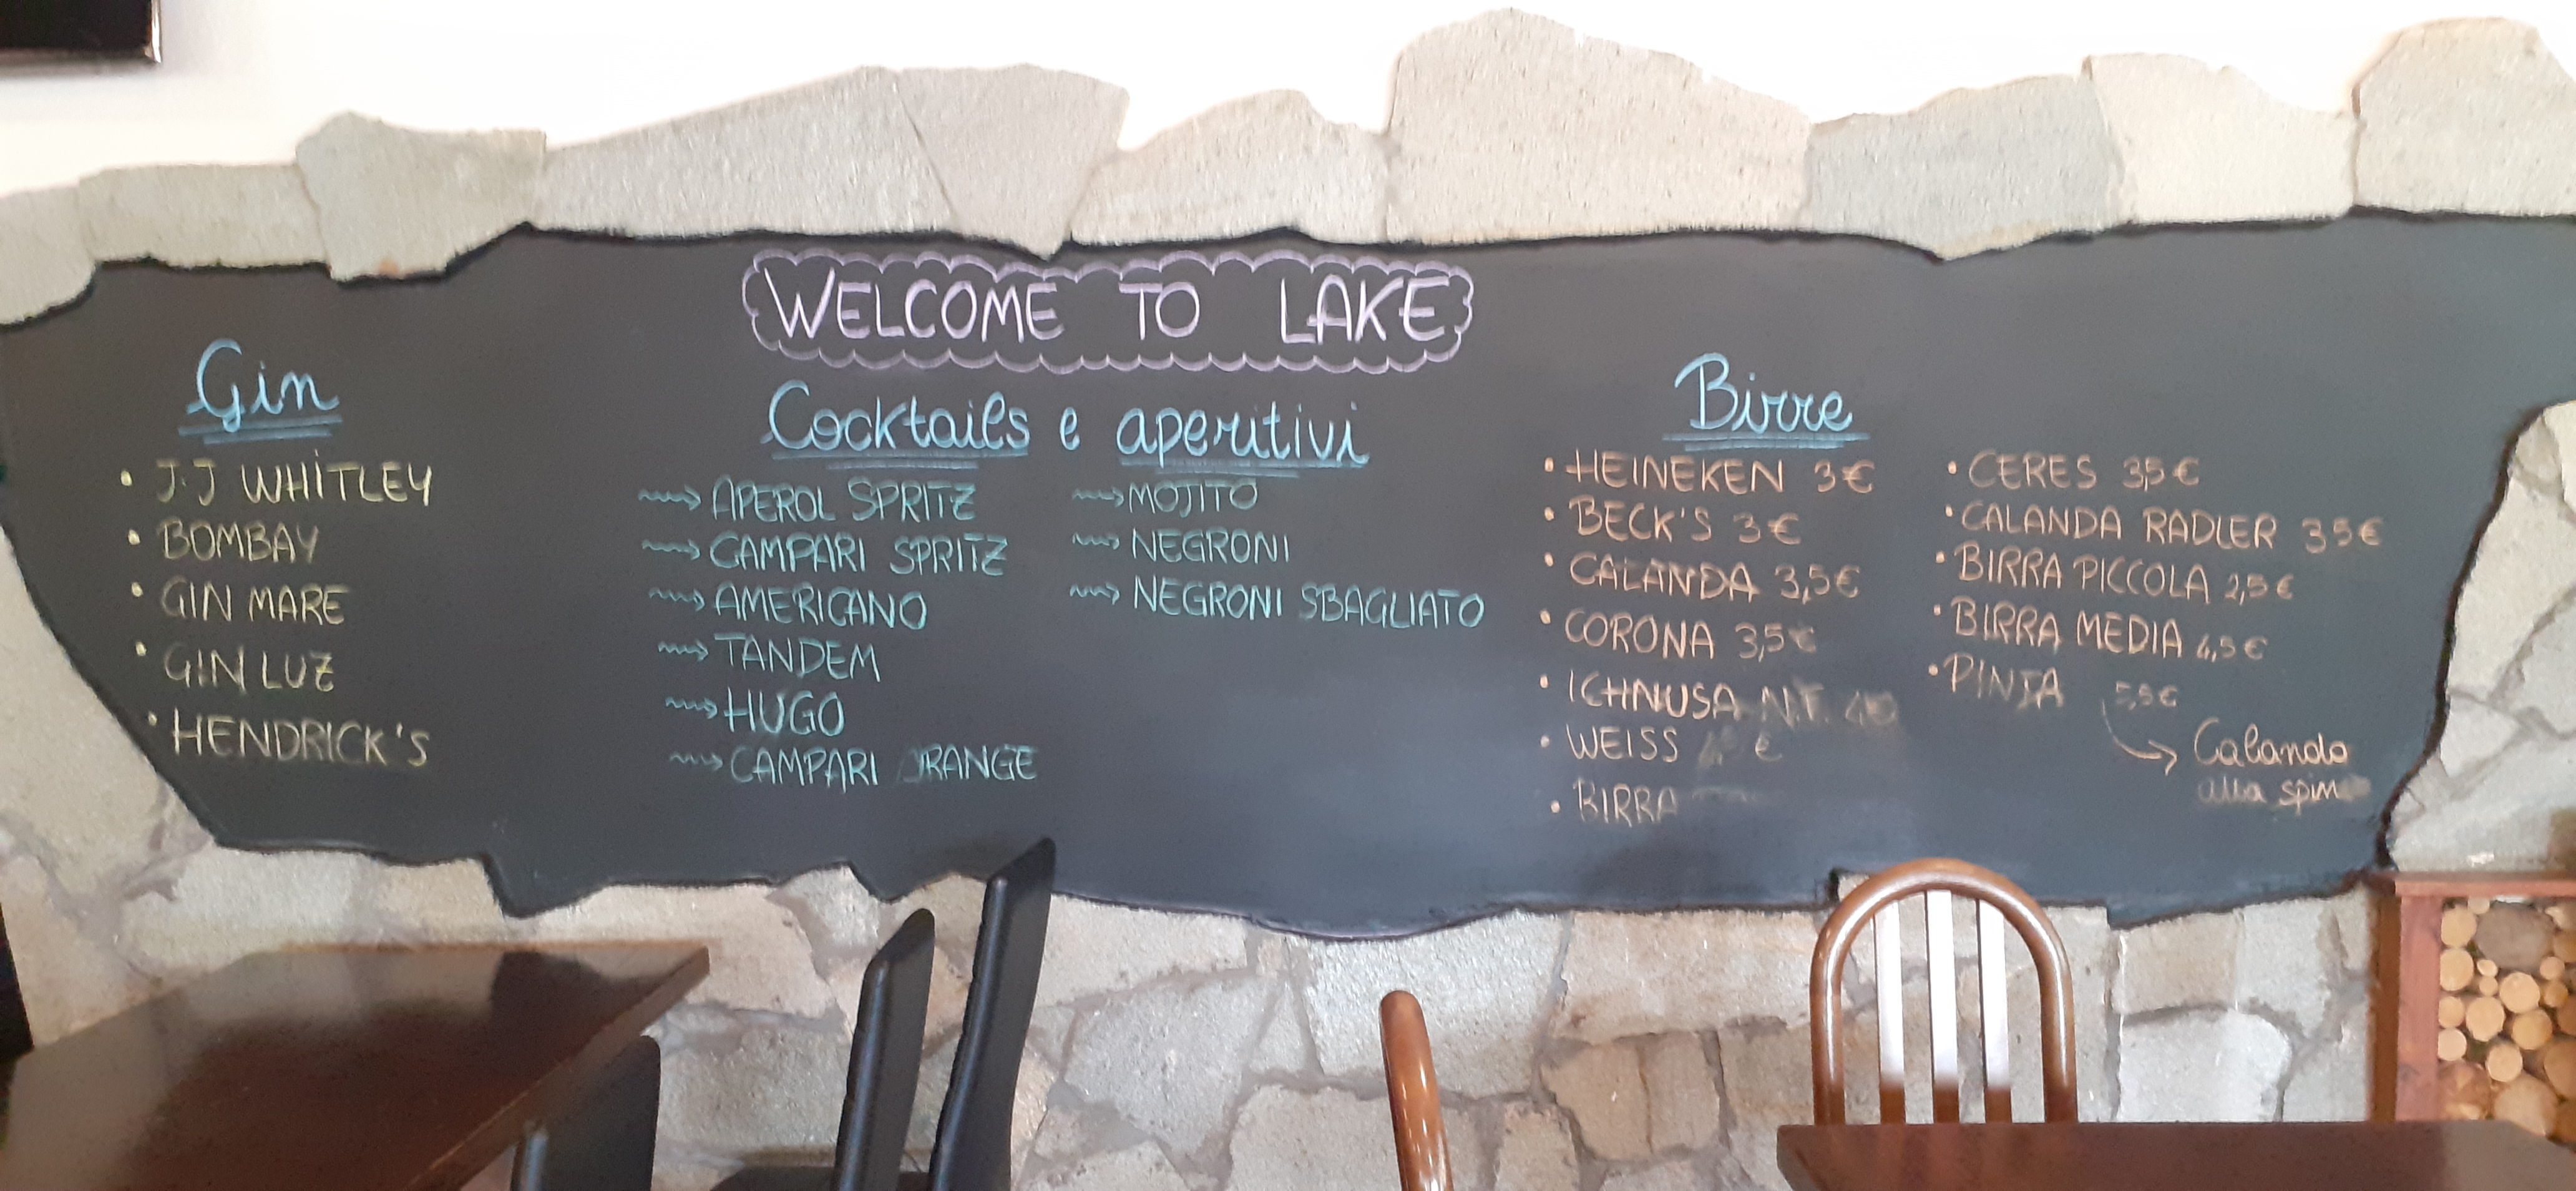 WELCOME TO LAKE
Gin
J.J WHITLEY
BOMBAY
GIN MARE
GIN LUZ
HENDRICK'S
Cocktails e aperitivi
APEROL SPRITZ
CAMPARI SPRITZ
AMERICANO
TANDEM
HUGO
CAMPARI ORANGE
MOJITO
NEGRONI
NEGRONI SBAGLIATO
Birre
HEINEKEN 3€
BECK'S 3€
CALANDA 3,5€
CORONA 3,5€
ICHNUSA N.F.
WEISS €
BIRRA
CERES 3,5€
CALANDA RADLER 3,5€
BIRRA PICCOLA 2,5€
BIRRA MEDIA 4,5€
PINTA 5,5€
Calanda
alla spina